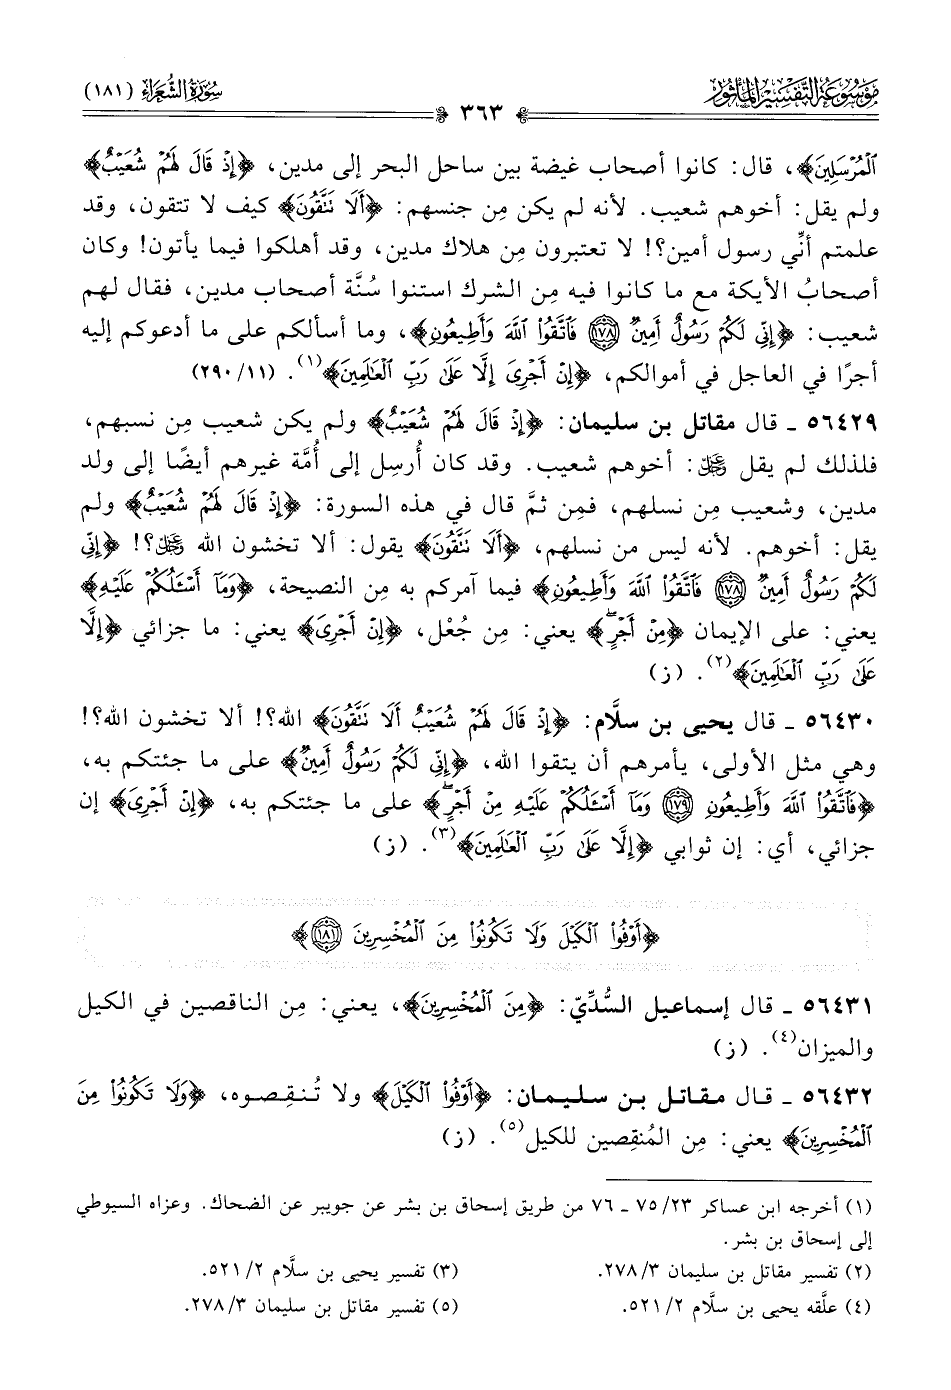 مَوْسُوعَة التَّفْسِير المَأْثُور
سُورَةُ الشُّعَرَاء (١٨١)
٣٦٣
ٱلْمُرْسَلِينَ﴾، قال: كانوا أصحاب غيضة بين ساحل البحر إلى مدين، ﴿إِذْ قَالَ لَهُمْ شُعَيْبٌ﴾
ولم يقل: أخوهم شعيب. لأنه لم يكن مِن جنسهم: ﴿أَلَا تَتَّقُونَ﴾ كيف لا تتقون، وقد
علمتم أنِّي رسول أمين؟! لا تعتبرون مِن هلاك مدين، وقد أهلكوا فيما يأتون! وكان
أصحابُ الأيكة مع ما كانوا فيه مِن الشرك استنوا سُنَّة أصحاب مدين، فقال لهم
شعيب: ﴿إِنِّى لَكُمْ رَسُولٌ أَمِينٌ ١٧٨ فَٱتَّقُوا۟ ٱللَّهَ وَأَطِيعُونِ﴾، وما أسألكم على ما أدعوكم إليه
أجرًا في العاجل في أموالكم، ﴿إِنْ أَجْرِىَ إِلَّا عَلَىٰ رَبِّ ٱلْعَـٰلَمِينَ﴾(١). (١١/ ٢٩٠)
٥٦٤٢٩ ـ قال مقاتل بن سليمان: ﴿إِذْ قَالَ لَهُمْ شُعَيْبٌ﴾ ولم يكن شعيب مِن نسبهم،
فلذلك لم يقل ﷿: أخوهم شعيب. وقد كان أُرسِل إلى أُمَّة غيرهم أيضًا إلى ولد
مدين، وشعيب مِن نسلهم، فمِن ثمَّ قال في هذه السورة: ﴿إِذْ قَالَ لَهُمْ شُعَيْبٌ﴾ ولم
يقل: أخوهم. لأنه ليس من نسلهم، ﴿أَلَا تَتَّقُونَ﴾ يقول: ألا تخشون الله ﷿؟! ﴿إِنِّى
لَكُمْ رَسُولٌ أَمِينٌ ١٧٨ فَٱتَّقُوا۟ ٱللَّهَ وَأَطِيعُونِ﴾ فيما آمركم به مِن النصيحة، ﴿وَمَآ أَسْـَٔلُكُمْ عَلَيْهِ﴾
يعني: على الإيمان ﴿مِنْ أَجْرٍ﴾ يعني: مِن جُعْل، ﴿إِنْ أَجْرِىَ﴾ يعني: ما جزائي ﴿إِلَّا
عَلَىٰ رَبِّ ٱلْعَـٰلَمِينَ﴾(٢). (ز)
٥٦٤٣٠ ـ قال يحيى بن سلَّام: ﴿إِذْ قَالَ لَهُمْ شُعَيْبٌ أَلَا تَتَّقُونَ﴾ الله؟! ألا تخشون الله؟!
وهي مثل الأولى، يأمرهم أن يتقوا الله، ﴿إِنِّى لَكُمْ رَسُولٌ أَمِينٌ﴾ على ما جئتكم به،
﴿فَٱتَّقُوا۟ ٱللَّهَ وَأَطِيعُونِ ١٧٩ وَمَآ أَسْـَٔلُكُمْ عَلَيْهِ مِنْ أَجْرٍ﴾ على ما جئتكم به، ﴿إِنْ أَجْرِىَ﴾ إن
جزائي، أي: إن ثوابي ﴿إِلَّا عَلَىٰ رَبِّ ٱلْعَـٰلَمِينَ﴾(٣). (ز)
﴿أَوْفُوا۟ ٱلْكَيْلَ وَلَا تَكُونُوا۟ مِنَ ٱلْمُخْسِرِينَ ١٨١﴾
٥٦٤٣١ ـ قال إسماعيل السُّدِّيّ: ﴿مِنَ ٱلْمُخْسِرِينَ﴾، يعني: مِن الناقصين في الكيل
والميزان(٤). (ز)
٥٦٤٣٢ ـ قال مقاتل بن سليمان: ﴿أَوْفُوا۟ ٱلْكَيْلَ﴾ ولا تُنقِصوه، ﴿وَلَا تَكُونُوا۟ مِنَ
ٱلْمُخْسِرِينَ﴾ يعني: مِن المُنقِصين للكيل(٥). (ز)
(١) أخرجه ابن عساكر ٢٣/ ٧٥ ـ ٧٦ من طريق إسحاق بن بشر عن جويبر عن الضحاك. وعزاه السيوطي
إلى إسحاق بن بشر.
(٢) تفسير مقاتل بن سليمان ٣/ ٢٧٨.
(٣) تفسير يحيى بن سلَّام ٢/ ٥٢١.
(٤) علَّقه يحيى بن سلَّام ٢/ ٥٢١.
(٥) تفسير مقاتل بن سليمان ٣/ ٢٧٨.